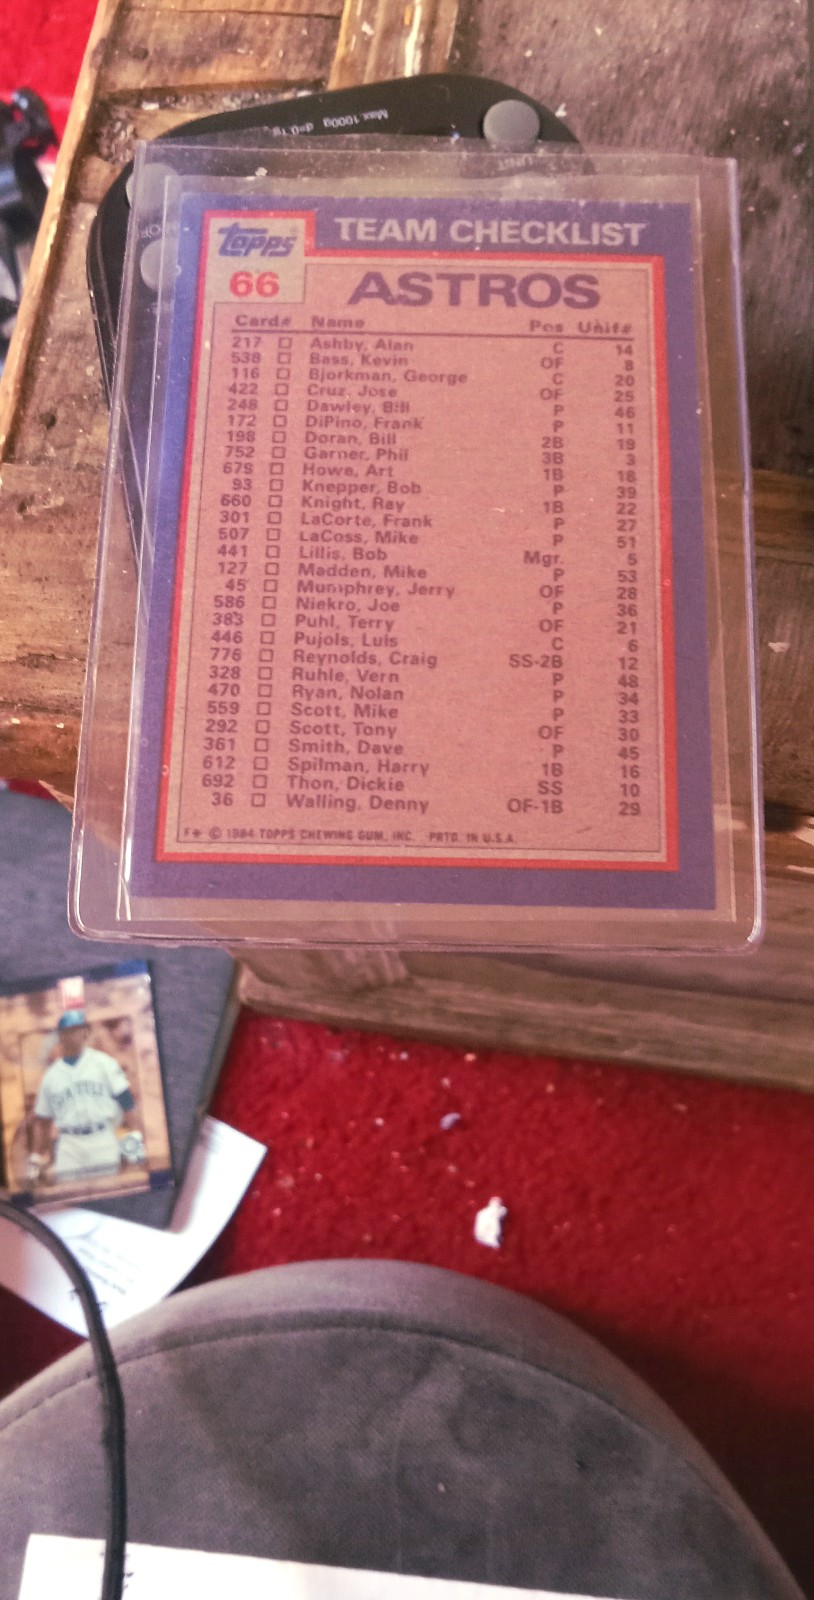 Max.1000g d=0.1g
UNIT
topps TEAM CHECKLIST
66 ASTROS
Card# Name Pos Unif#
217 Ashby, Alan C 14
538 Bass, Kevin OF 8
116 Bjorkman, George C 20
422 Cruz, Jose OF 25
248 Dawley, Bill P 46
172 DiPino, Frank P 11
198 Doran, Bill 2B 19
752 Garner, Phil 3B 3
679 Howe, Art 1B 18
93 Knepper, Bob P 39
660 Knight, Ray 1B 22
301 LaCorte, Frank P 27
507 LaCoss, Mike P 51
441 Lillis, Bob Mgr. 5
127 Madden, Mike P 53
45 Mumphrey, Jerry OF 28
586 Niekro, Joe P 36
383 Puhl, Terry OF 21
446 Pujols, Luis C 6
776 Reynolds, Craig SS-2B 12
328 Ruhle, Vern P 48
470 Ryan, Nolan P 34
559 Scott, Mike P 33
292 Scott, Tony OF 30
361 Smith, Dave P 45
612 Spilman, Harry 1B 16
692 Thon, Dickie SS 10
36 Walling, Denny OF-1B 29
F* © 1984 TOPPS CHEWING GUM, INC. PRTD. IN U.S.A.